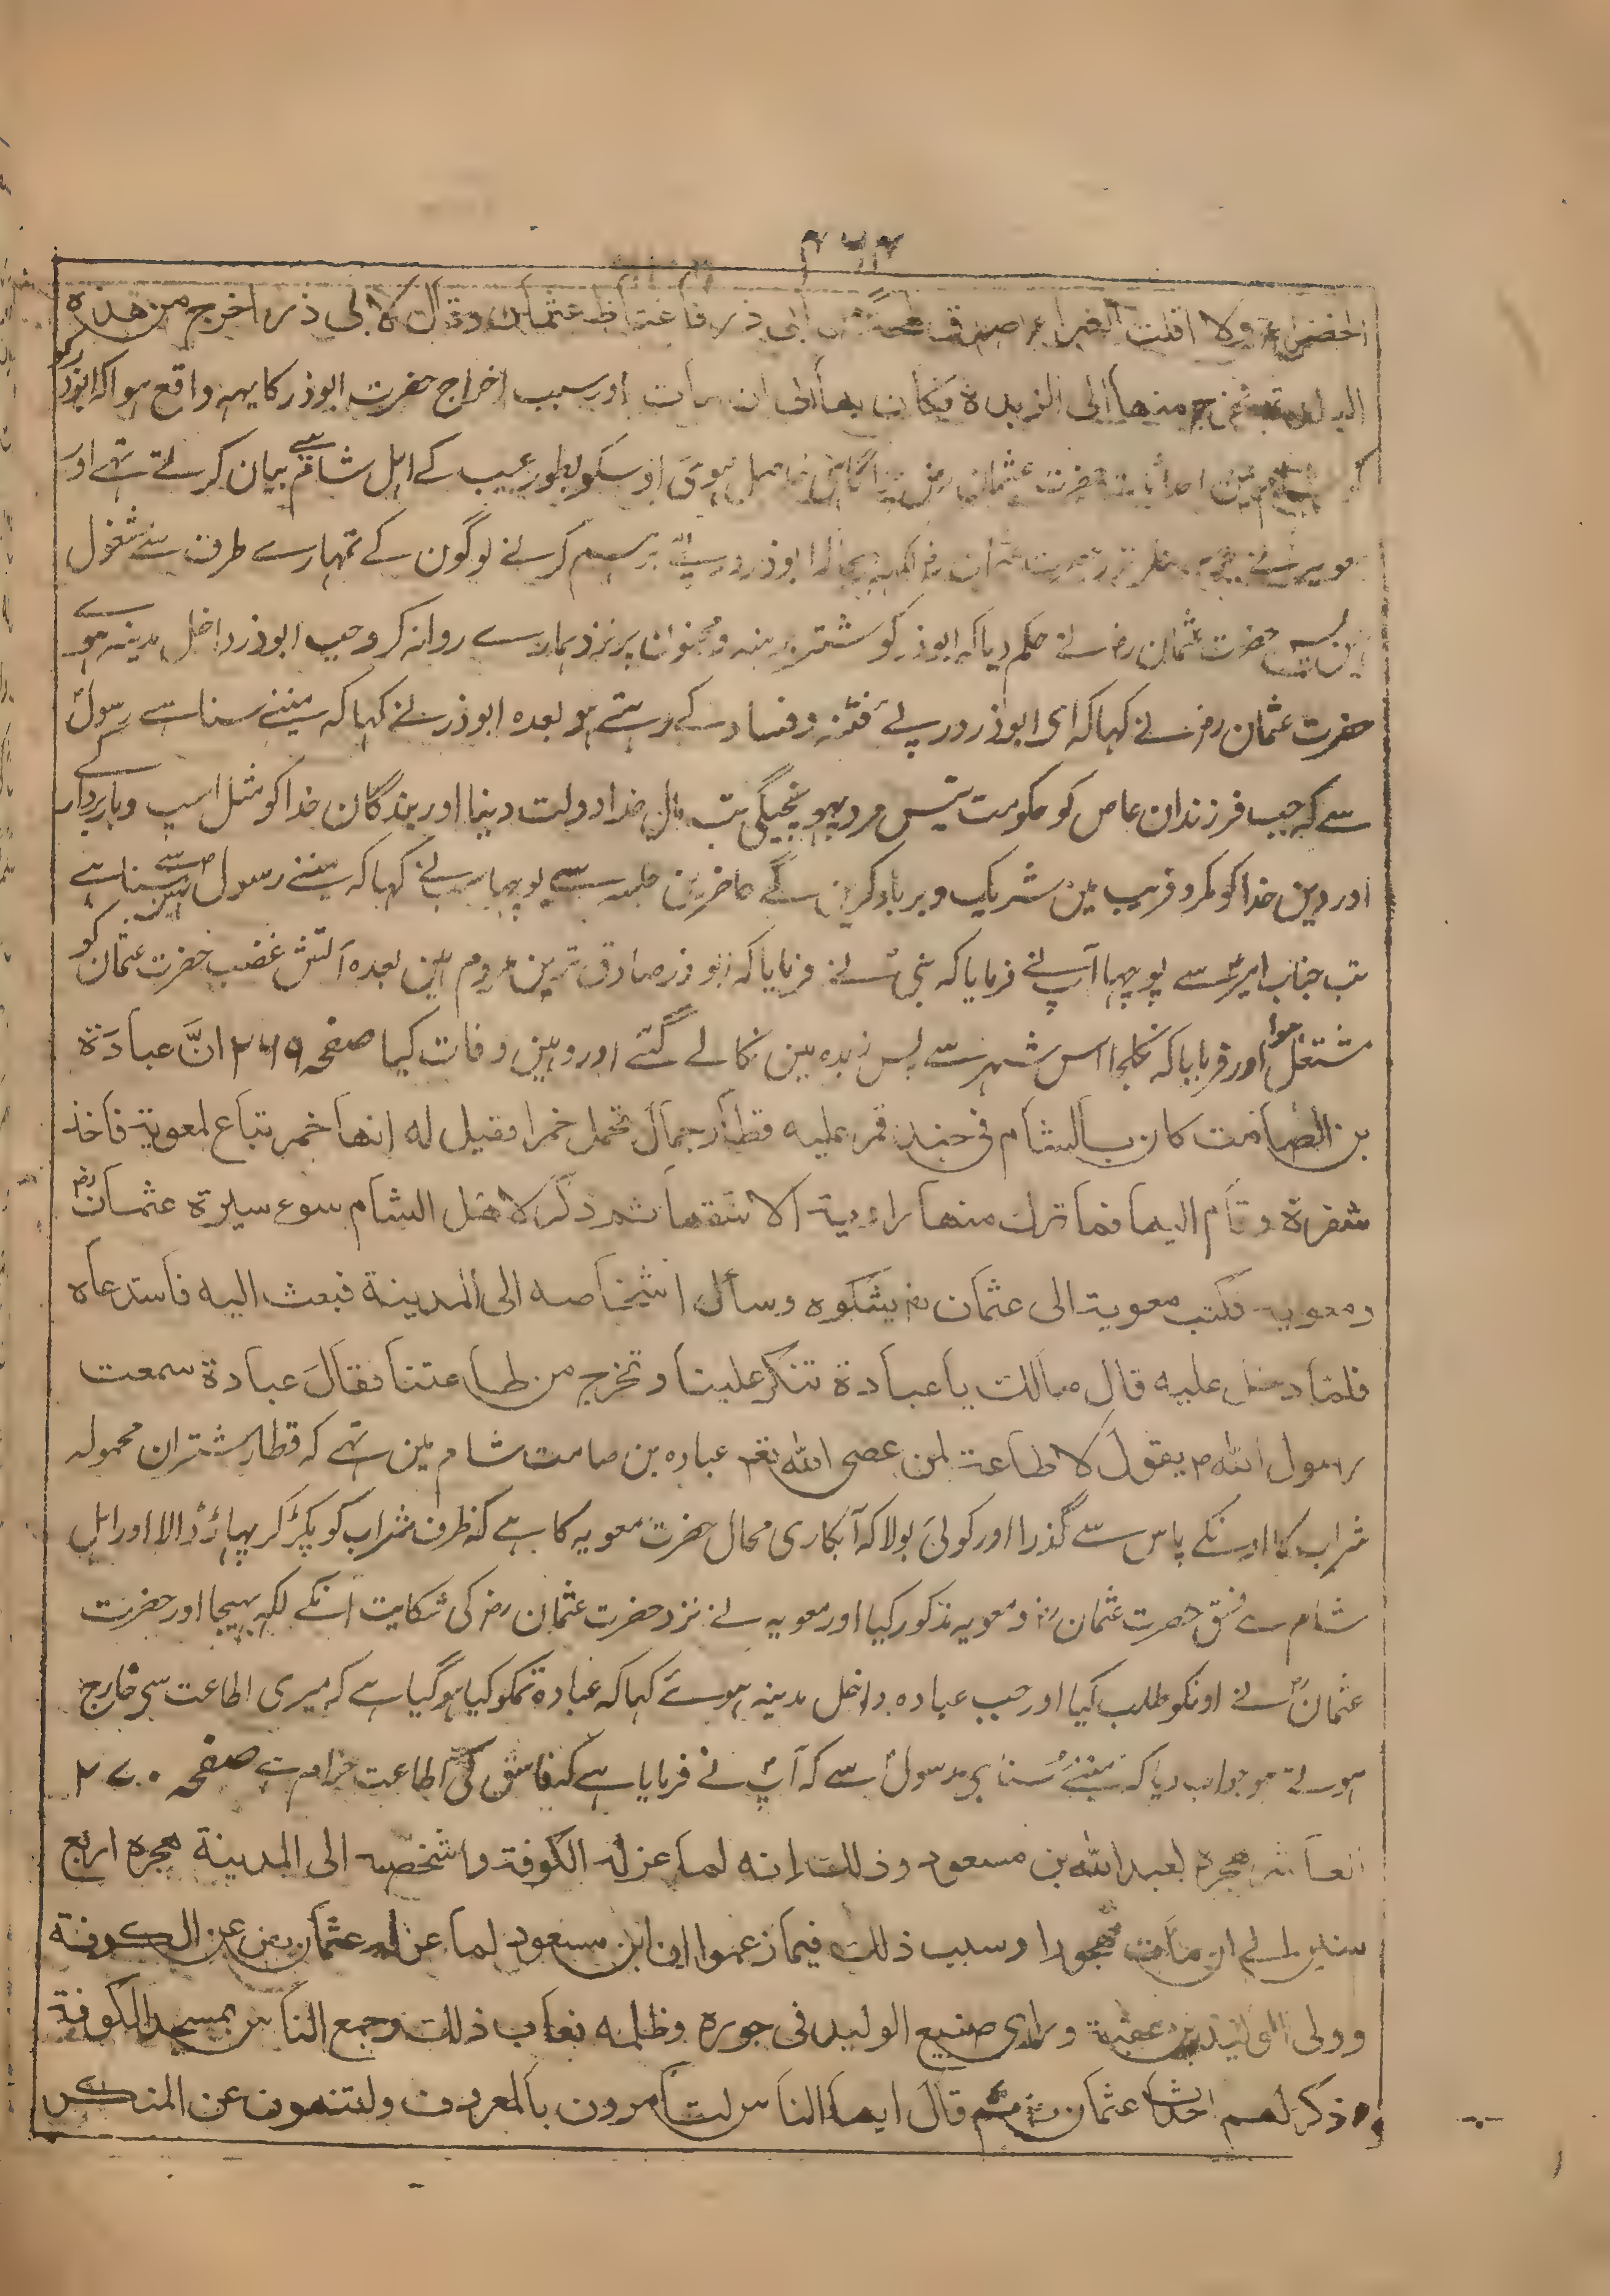 ۲۶۲
الخضراء ولا اقلت الغبراء اصدق من ابی ذر فاغتاظ عثمان وقال لابی ذر اخرج من هذه
البلدة فخرج منها الی الزبدة فکان بها الی ان مات اور سبب اخراج حضرت ابوذر کا یہہ واقع ہوا کہ ابوذر کو
کہ شام مین احداث حضرت عثمان رض حاصل ہوئی اوسکو بطور عیب کے اہل شام سے بیان کرتے تہے اور
ابوذر کرنے لوگون کے تمہارے طرف سے مشغول
ہین پس حضرت عثمان رض نے حکم دیا کہ ابوذر کو شتر برہنہ پر نزد ہمارے روانہ کرو جب ابوذر داخل مدینہ ہوے
حضرت عثمان رض نے کہا کہ ای ابوذر درپئے فتنہ و فساد کے رہتے ہو بعدہ ابوذر نے کہا کہ مینے سنا ہے رسولؐ
سے کہ جب فرزندان عاص کو حکومت تیس مرد پہونچیگی تب مال خدا دولت دینا اور بندگان خدا کو مثل اسپ و باربردار کے
اور دین خدا کو مکر و فریب مین شریک و برباد کرین گے حاضرین جلسہ سے پوچہا سب نے کہا کہ مینے رسول ص سے نہین سنا ہے
تب جناب امیرؑ سے پوچہا آپ نے فرمایا کہ نبیؐ نے فرمایا کہ ابوذر صادق ترین مردم ہین بعدہ آتش غضب حضرت عثمان کو
مشتعل ہوا اور فرمایا کہ نکلجا اس شہر سے پس زبدہ مین نکالے گئے اور وہین وفات کیا صفحہ ۲۶۹ انَّ عبادَة
بن الصامت کان بالشام فی جند فمر علیه قطار جمال تحمل خمرا فقیل له انها خمر تباع لمعویة فاخذ
شفرة وقام الیها فما ترک منها راویة الا شقها ثم ذکر لاهل الشام سوء سیرة عثمان رض
ومعویه فکتب معویة الی عثمان رض یشکوه وسأل اشخاصه الی المدینة فبعث الیه فاستدعاه
فلما دخل علیه قال مالک یا عبادة تنکر علینا وتخرج من طاعتنا فقال عبادة سمعت
رسول الله ص یقول لا طاعة لمن عصی الله تعم عبادہ بن صامت شام مین تہے کہ قطار شتران محمولہ
شراب کا اونکے پاس سے گذرا اور کوئی بولا کہ آبکاری محال حضرت معویہ کا ہے کہ ظرف شراب کو پکڑ کر پہاڑ ڈالا اور اہل
شام سے فسق حضرت عثمان رض و معویہ مذکور کیا اور معویہ نے نزد حضرت عثمان رض کی شکایت انکے لکہہ بہیجا اور حضرت
عثمان رض نے اونکو طلب کیا اور جب عبادہ داخل مدینہ ہوئے کہا کہ عبادة تمکو کیا ہو گیا ہے کہ میری اطاعت سی خارج
ہوتے ہو جواب دیا کہ مینے سُنا ہی رسولؐ سے کہ آپؐ نے فرمایا ہے کہ فاسق کی اطاعت حرام ہے صفحہ ۲۷۰
العاشر هجره لعبد الله بن مسعود وذلک انه لما عزله الکوفة واشخصه الی المدینة هجره اربع
سنین الی ان مات مهجورا وسبب ذلک فیما زعموا ان ابن مسعود لما عزله عثمان رض عن الکوفة
وولی الولید بن عقبة ورای صنیع الولید فی جوره وظلمه فعاب ذلک وجمع الناس بمسجد الکوفة
وذکر لهم احداث عثمان رض ثم قال ایها الناس لتامرون بالمعروف ولتنهون عن المنکر